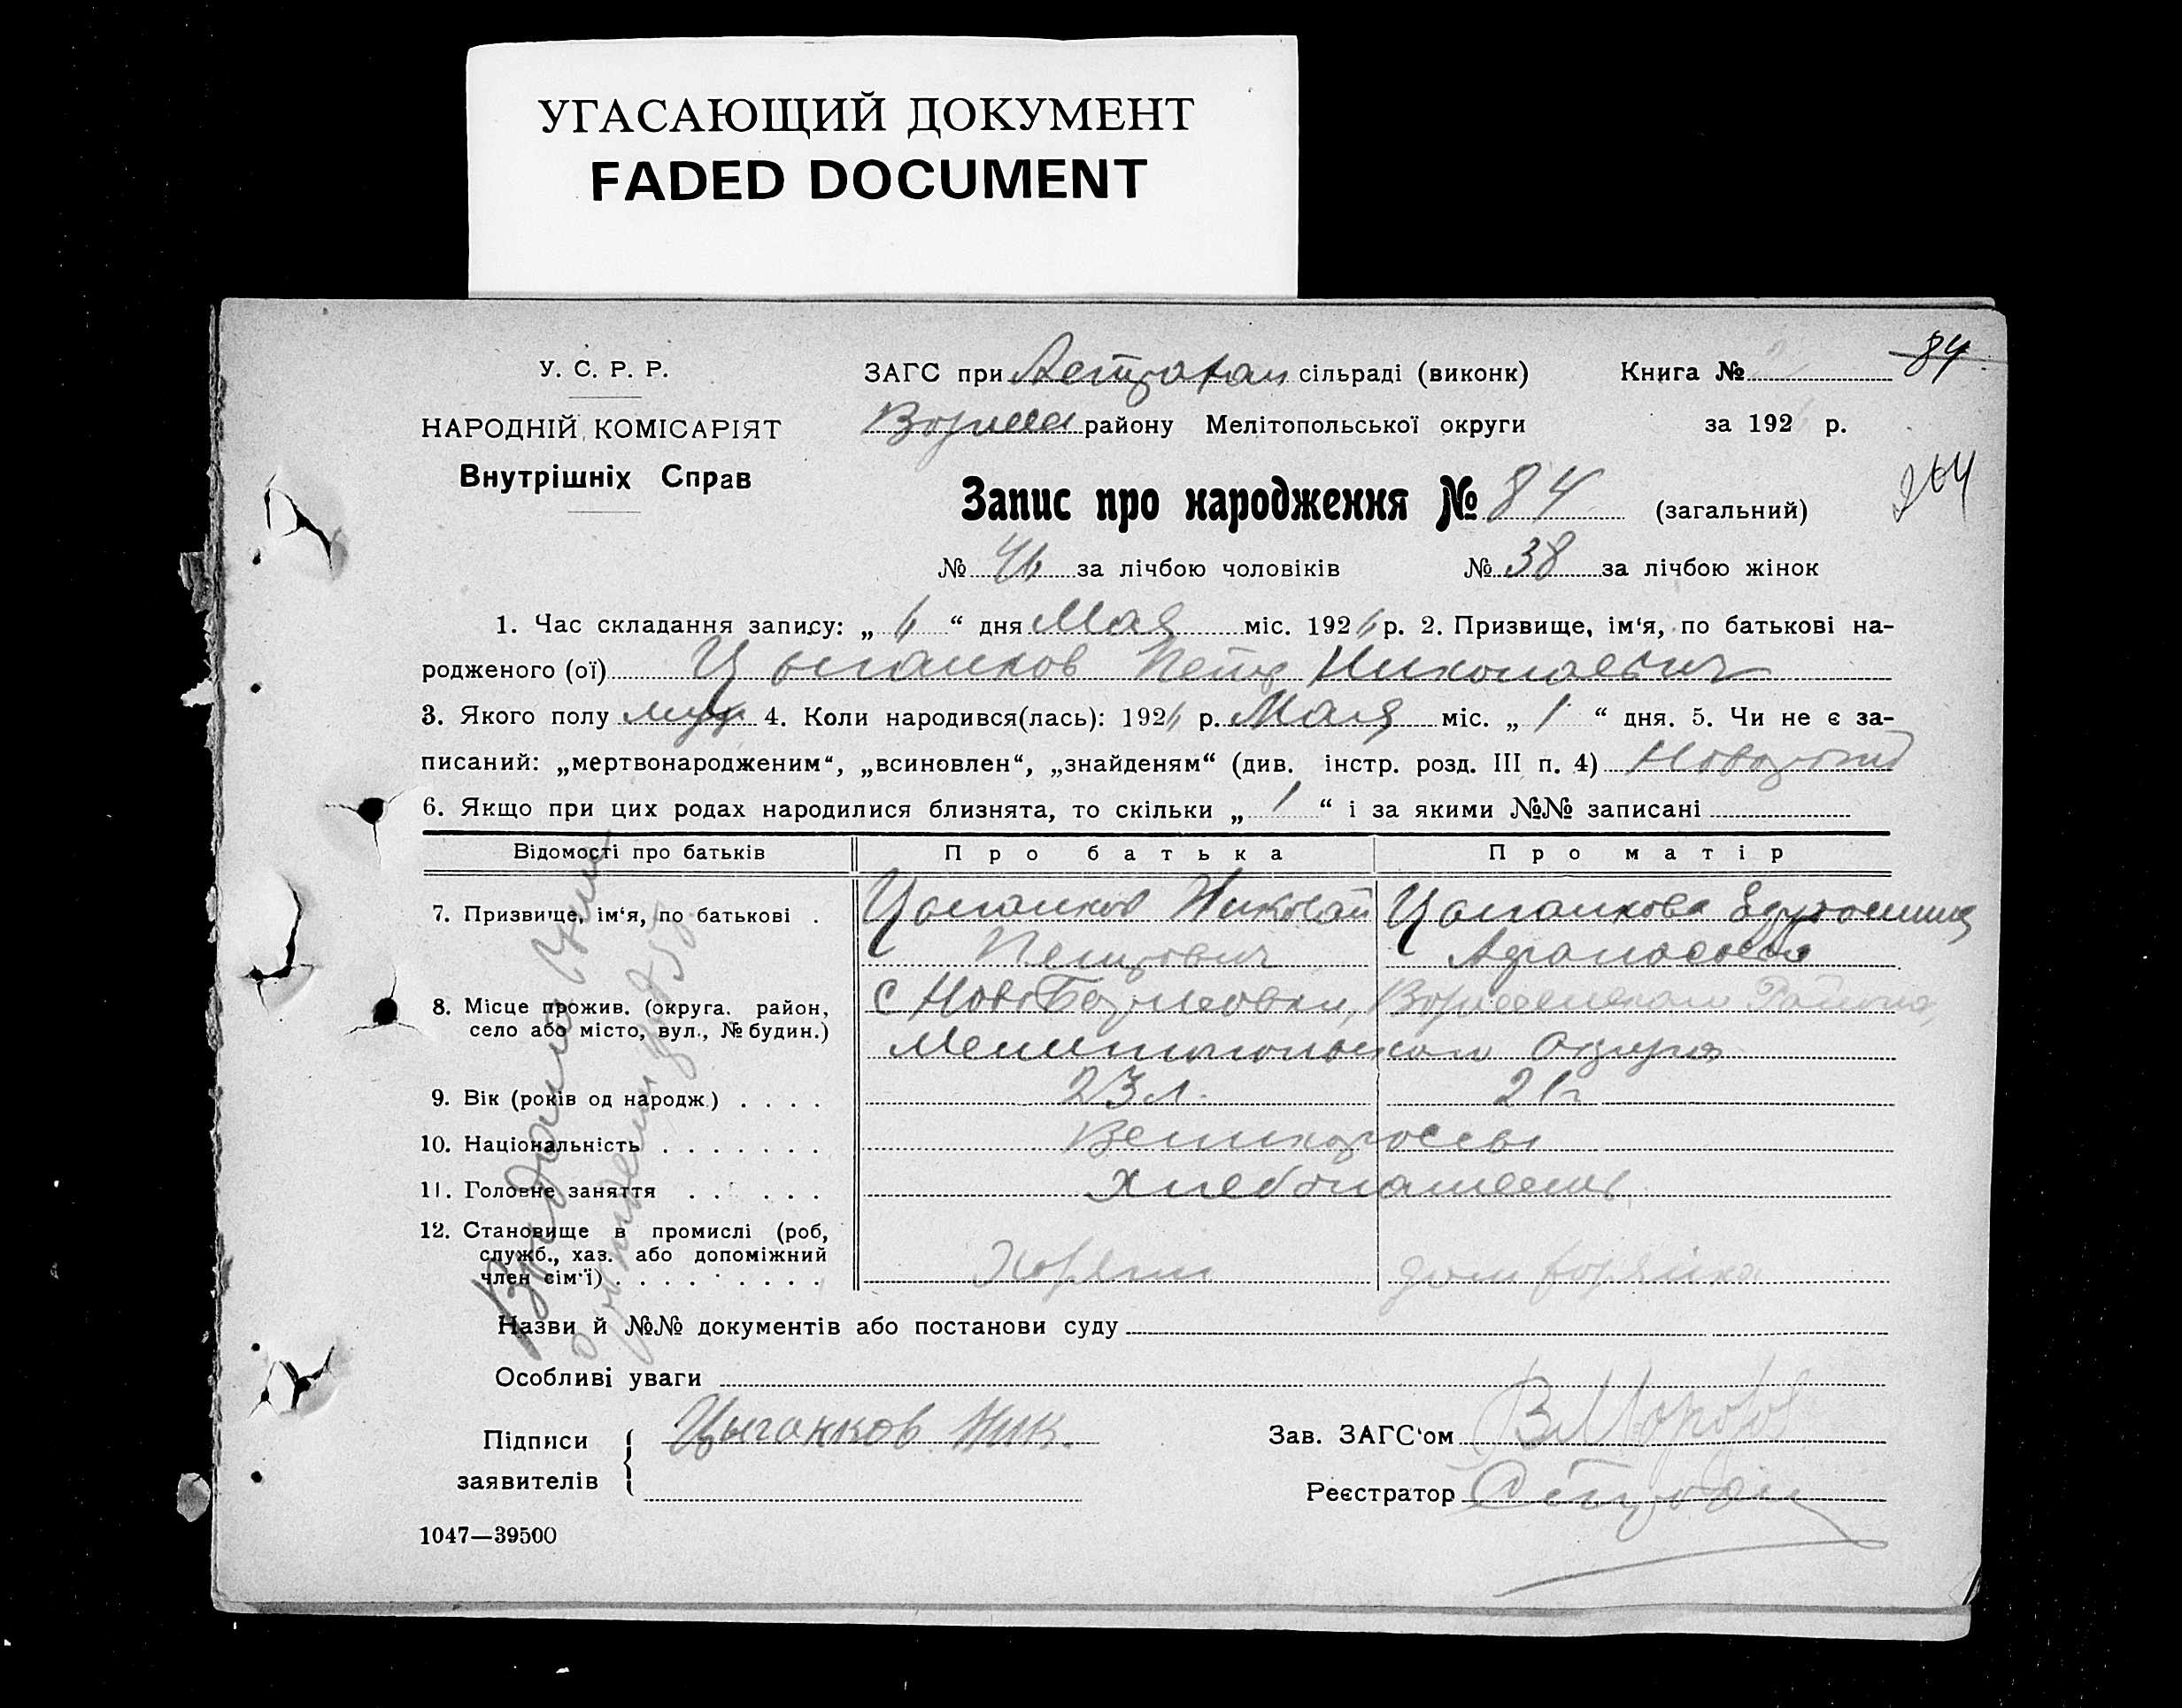 УГАСАЮЩИЙ ДОКУМЕНТ
FADED DOCUMENT
У. С. Р. Р.
НАРОДНІЙ КОМІСАРІЯТ
Внутрішніх Справ
ЗАГС при Астрахан сільраді (виконк)
района району Мелітопольської округи
Книга №
84
за 192 р.
264
Запис про народження № 84 (загальний)
№ 46 за лічбою чоловіків № 38 за лічбою жінок
1. Час складання запису: „ 6 “ дня Мая міс. 1926 р. 2. Призвище, ім‘я, по батькові на-
родженого (ої) Цыганков Петр Николаевич
3. Якого полу муж 4. Коли народився(лась): 1926 р. Мая міс. „ 1 “ дня. 5. Чи не є за-
писаний: „мертвонародженим“, „всиновлен“, „знайденям“ (див. інстр. розд. III п. 4)
6. Якщо при цих родах народилися близнята, то скільки „ 1 “ і за якими №№ записані
Відомості про батьків Про батька Про матір
7. Призвище, ім‘я, по батькові . Цыганков Николай Цыганкова
Петрович
8. Місце прожив. (округа. район,
село або місто, вул., № будин.)
с
Мелитопольского Округа
9. Вік (років од народж.) . . . . 23 л. 21 г
10. Національність . . . . . . . Великороссы
11. Головне заняття . . . . . . Хлебопашество
12. Становище в промислі (роб,
служб., хаз. або допоміжний
член сім‘ї) . . . . . . . . . Хозяин домохозяйка
Назви й №№ документів або постанови суду
Особливі уваги
Підписи
заявителів
Цыганков Ник.
Зав. ЗАГС‘ом
Реєстратор
1047—39500